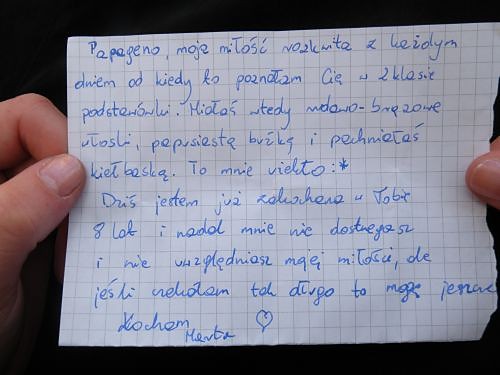 Papageno, moja miłość rozkwita z każdym
dniem od kiedy to poznałam Cię w 2 klasie
podstawówki. Miałaś wtedy rudawo-brązowe
włoski, papusiastą buźkę i pachniałaś
kiełbaską. To mnie uiekło :*
Dziś jestem już zakochana w Tobie
8 lat i nadal mnie nie dostregasz
i nie uwzględniasz mojej miłości, ale
jeśli czekałam tak długo to mogę jeszcze
Kocham
Marta ♡